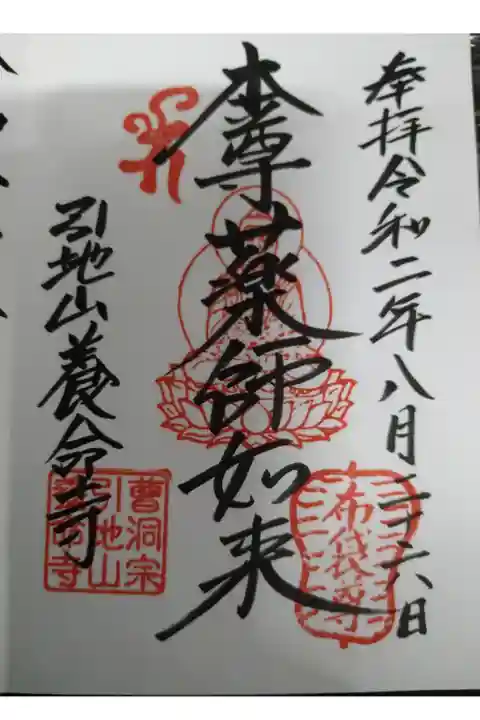 奉拝令和二年八月二十六日
布袋尊
本尊薬師如来
引地山養命寺
曹洞宗
引地山
養命寺